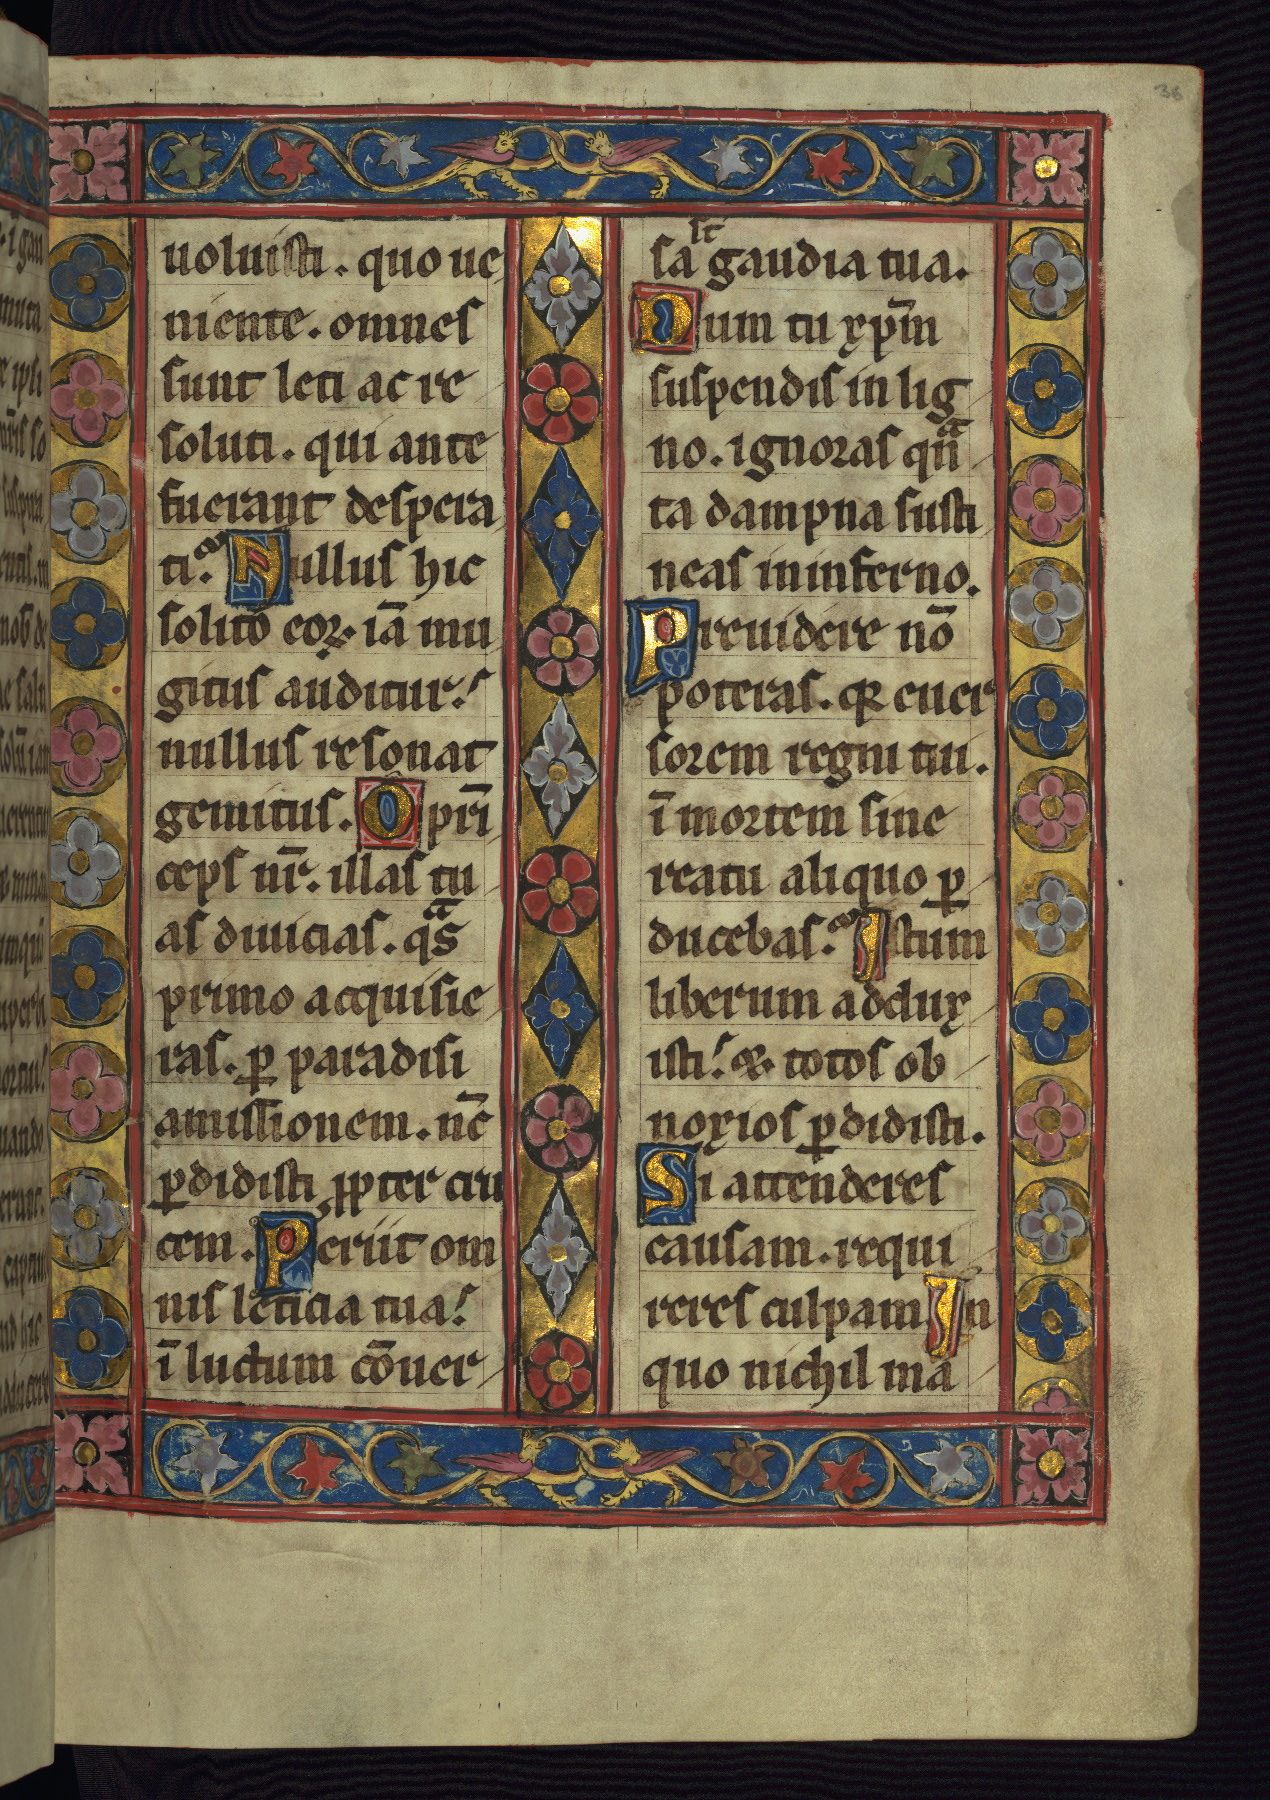 36
uoluisti. quo ue
niente. omnes
sunt leti ac re
soluti. qui ante
fuerant despera
ti. Nullus hic
solito eoꝝ. iā mu
gitus auditur.
nullus resonat
gemitus. O prī
ceps nr̄. illas tu
as diuicias. qͣs
primo acquisie
ras. ꝑ paradisi
amissionem. nc̄
ꝑdidisti ꝓpter cru
cem. Periit om
nis leticia tua.
ī luctum cōuer
st
sa gaudia tua.
Dum tu xp̄m
suspendis in lig
no. ignoras qͣn
ta dampna susti
neas in inferno.
Preuidere nō
poteras. qꝛ euer
sorem regni tui.
ī mortem sine
reatu aliquo ꝑ
ducebas. Istum
liberum addux
isti. & totos ob
noxios ꝑdidisti.
Si attenderes
causam. requi
reres culpam In
quo nichil ma